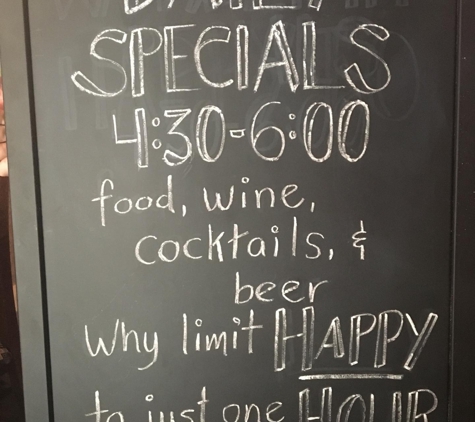 DAILY
SPECIALS
4:30-6:00
food, wine,
cocktails, &
beer
Why limit HAPPY
to just one HOUR